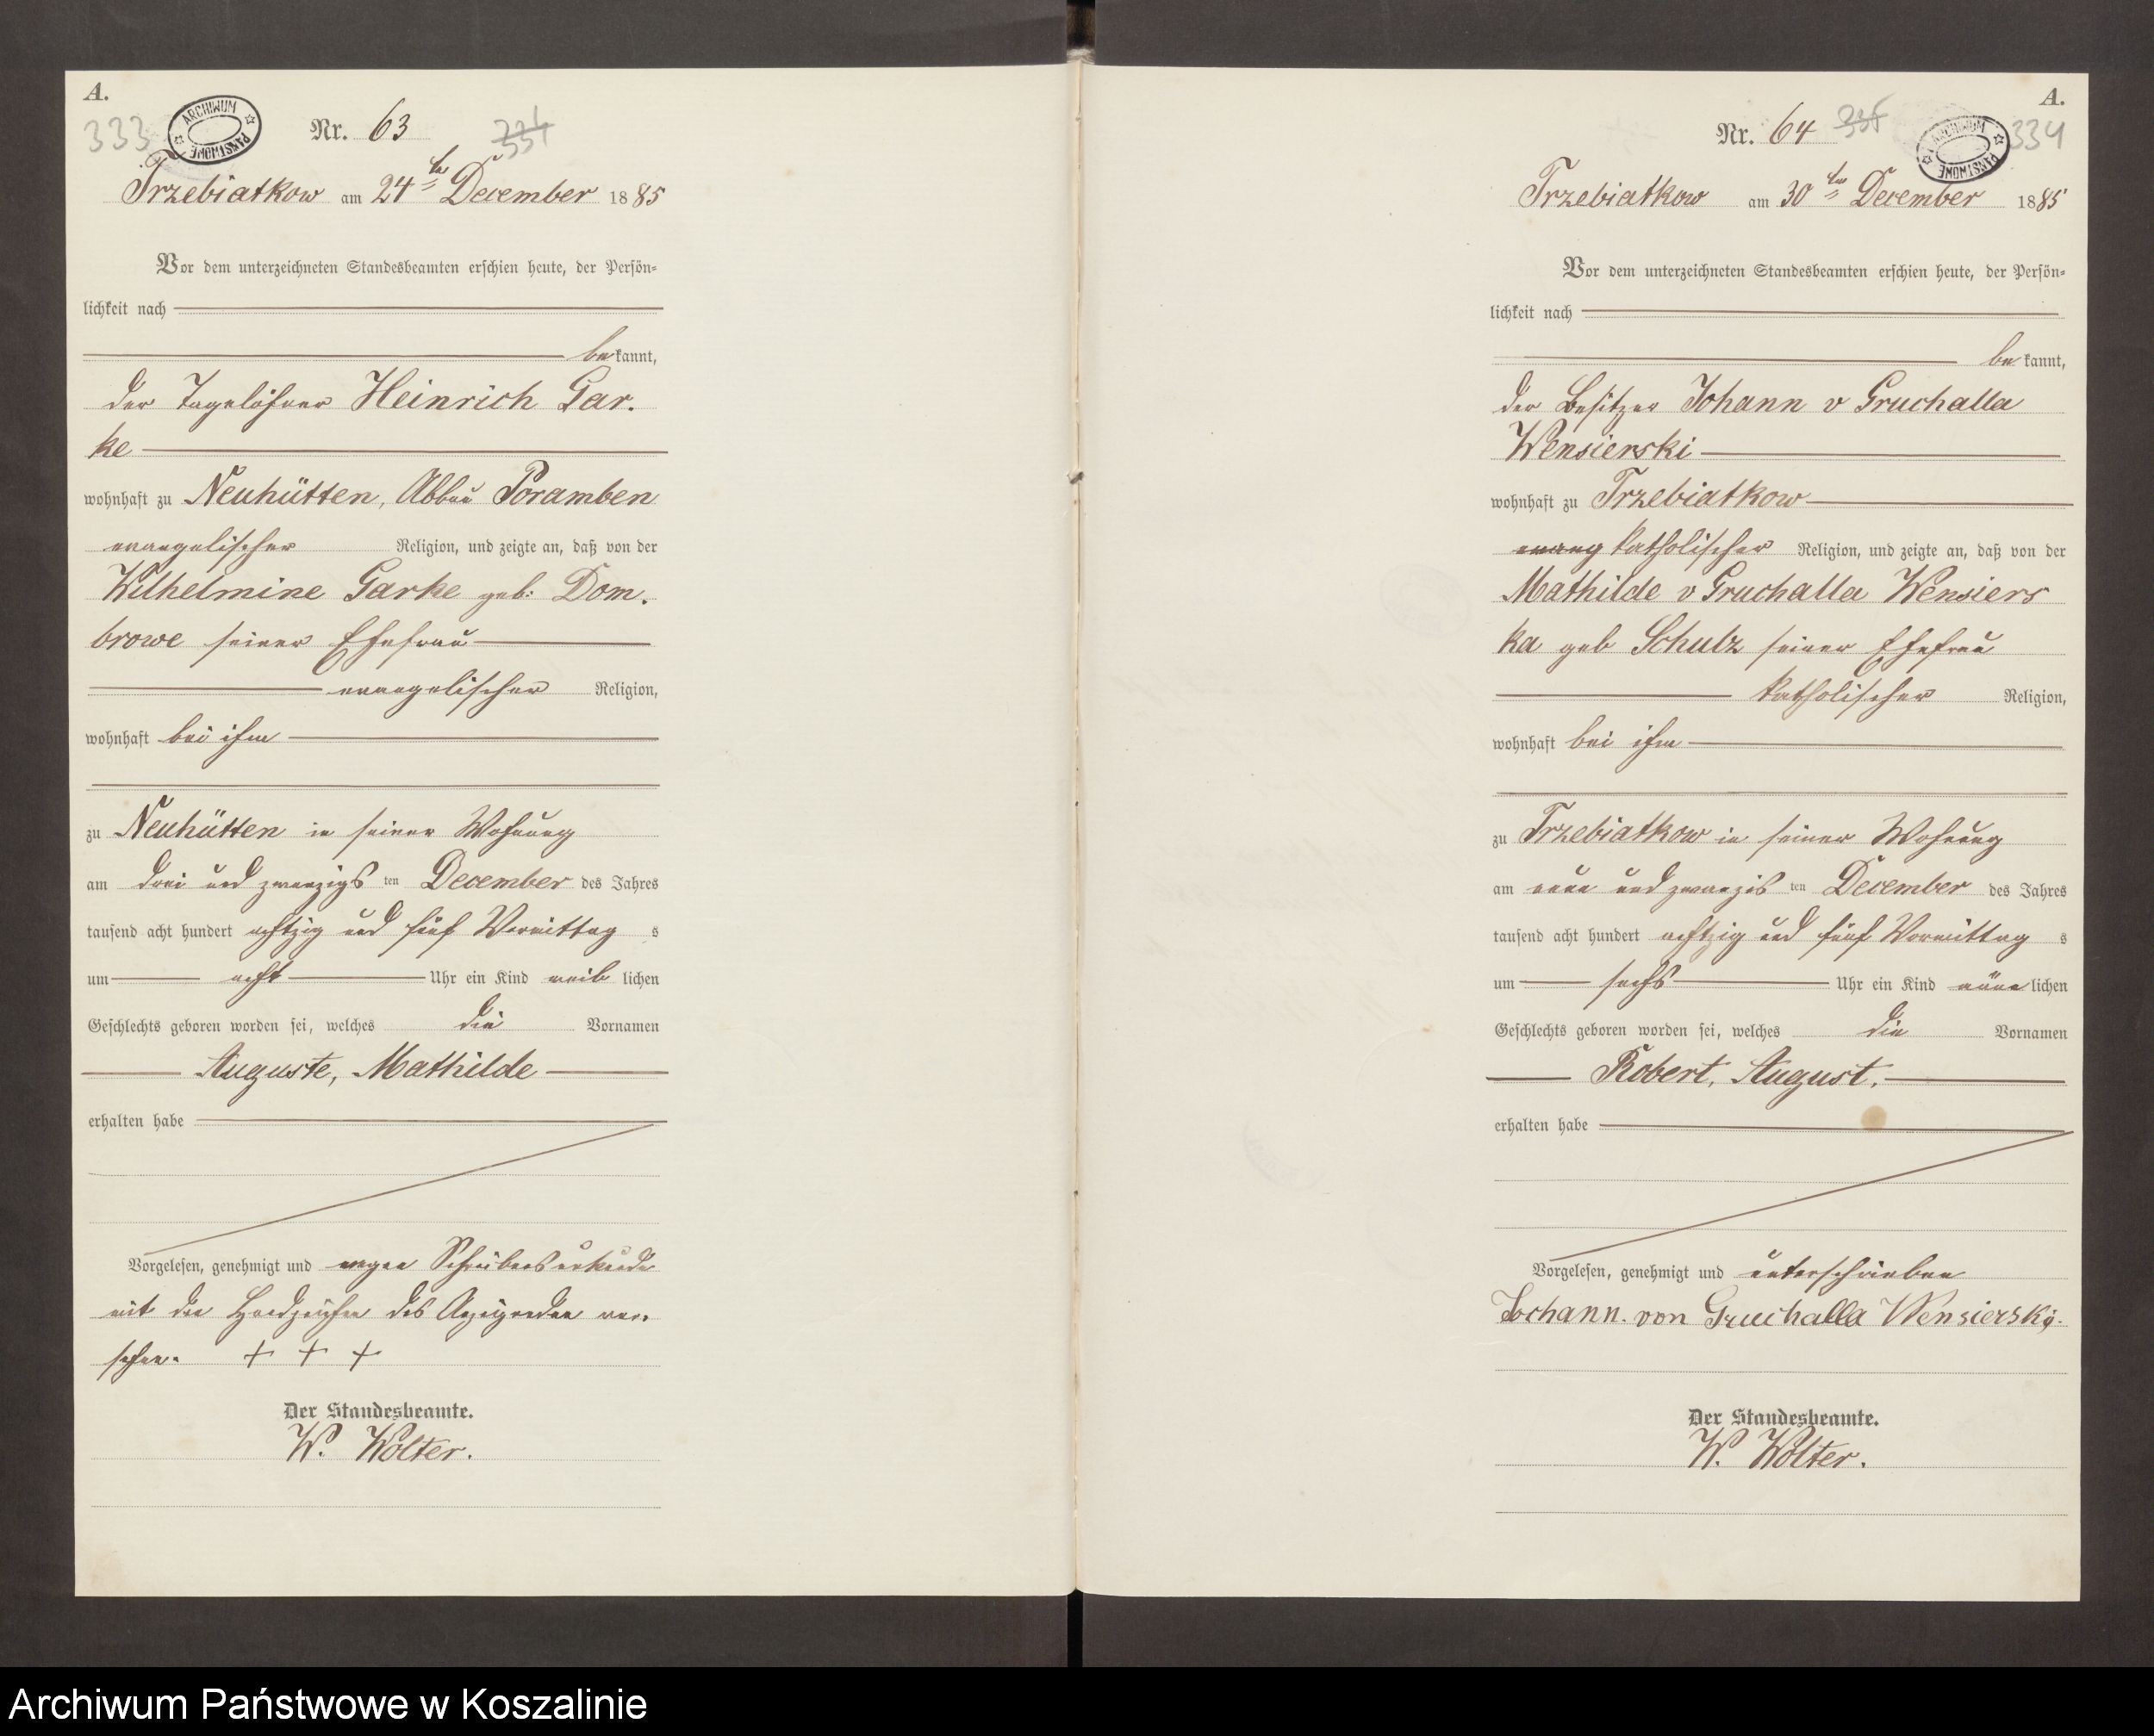 A.
333
ARCHIWUM PAŃSTWOWE
Nr. 63
334
Trzebiatkow am 24ten December 1885
Vor dem unterzeichneten Standesbeamten erschien heute, der Persön=
lichkeit nach
bekannt,
der Tagelöhner Heinrich Gar.
ke
wohnhaft zu Neuhütten, Abbau Poramben
evangelischer Religion, und zeigte an, daß von der
Wilhelmine Garke geb: Dom.
browe seiner Ehefrau
evangelischer Religion,
wohnhaft bei ihm
zu Neuhütten in seiner Wohnung
am drei und zwanzigsten December des Jahres
tausend acht hundert achtzig und fünf Vormittags
um acht Uhr ein Kind weiblichen
Geschlechts geboren worden sei, welches die Vornamen
Auguste, Mathilde
erhalten habe
Vorgelesen, genehmigt und wegen Schreibensunkunde
mit den Handzeichen des Anzeigenden ver.
sehen. + + +
Der Standesbeamte.
W. Wolter.
A.
Nr. 64
335
ARCHIWUM PAŃSTWOWE
334
Trzebiatkow am 30ten December 1885
Vor dem unterzeichneten Standesbeamten erschien heute, der Persön=
lichkeit nach
bekannt,
der Besitzer Johann v Gruchalla
Wensierski
wohnhaft zu Trzebiatkow
evang katholischer Religion, und zeigte an, daß von der
Mathilde v Gruchalla Wensiers
ka geb Schulz seiner Ehefrau
katholischer Religion,
wohnhaft bei ihm
zu Trzebiatkow in seiner Wohnung
am neun und zwanzigsten December des Jahres
tausend acht hundert achtzig und fünf Vormittags
um sechs Uhr ein Kind männlichen
Geschlechts geboren worden sei, welches die Vornamen
Robert, August.
erhalten habe
Vorgelesen, genehmigt und unterschrieben
Johann. von Gruchalla Wensiersky.
Der Standesbeamte.
W. Wolter.
Archiwum Państwowe w Koszalinie